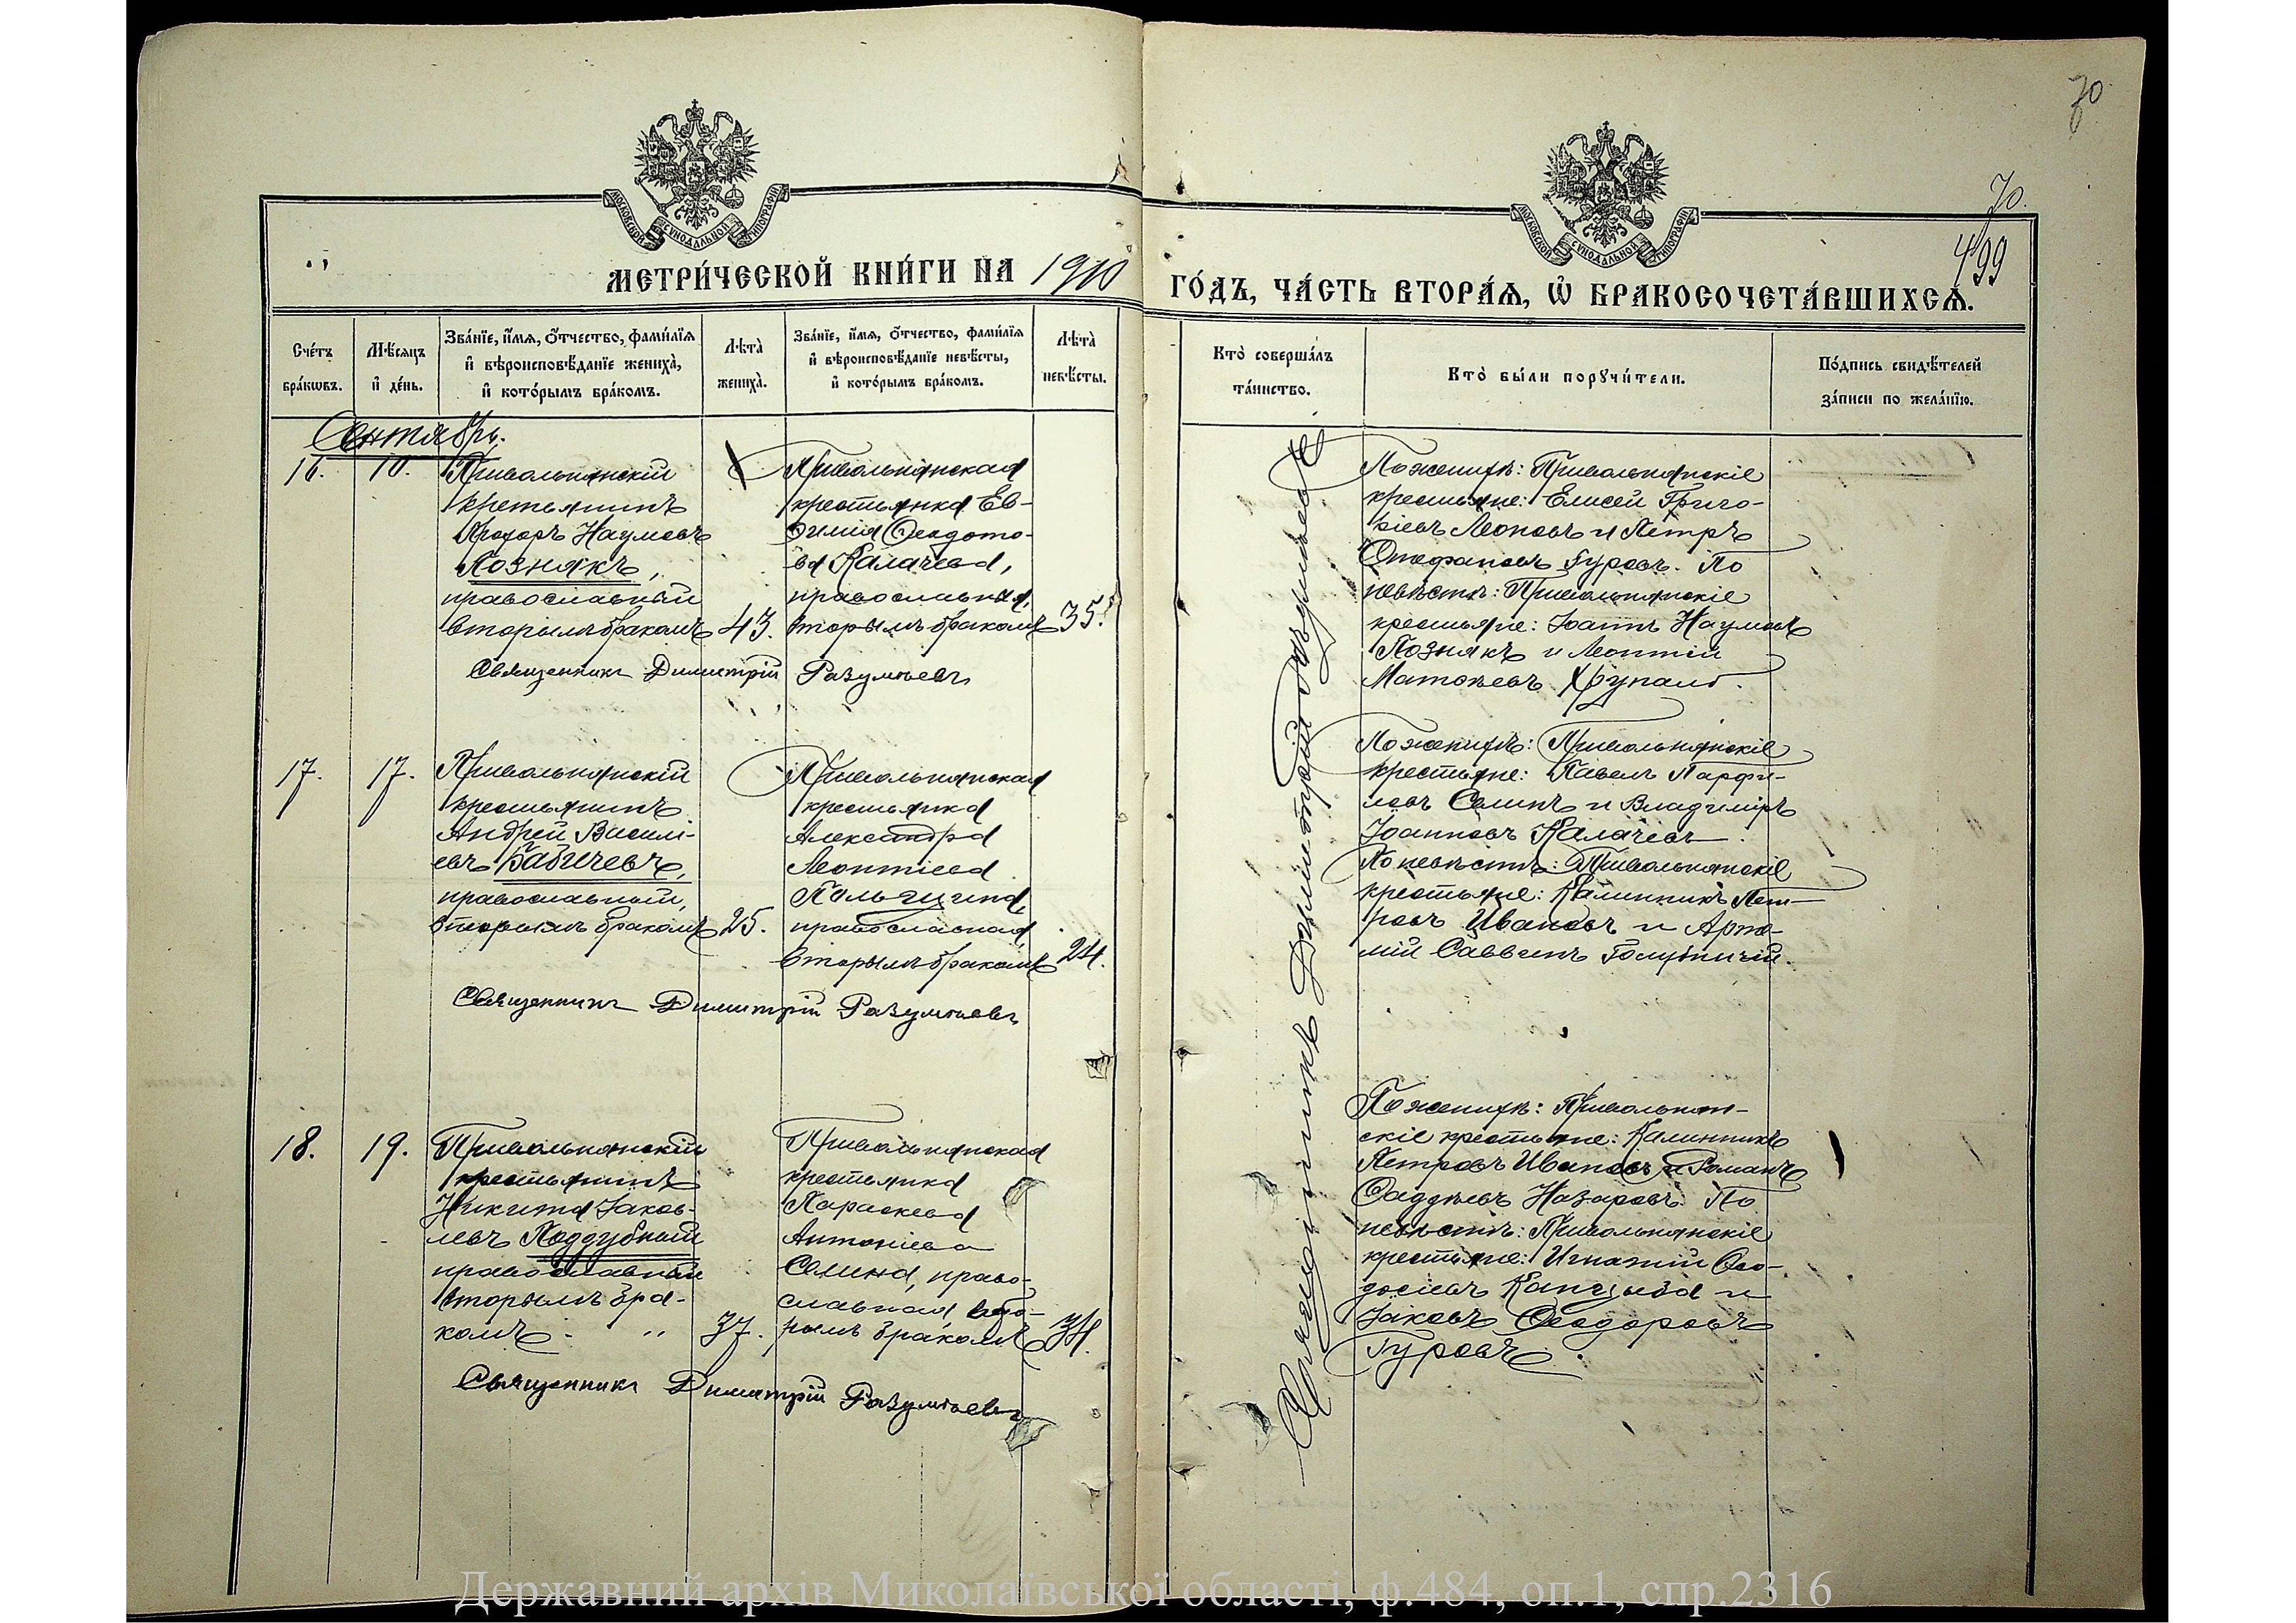 70
70.
499
МОСКОВСКОЙ СУНОДАЛЬНОЙ ТИПОГРАФІИ
МОСКОВСКОЙ СУНОДАЛЬНОЙ ТИПОГРАФІИ
МЕТРИ́ЧЕСКОЙ КНИ́ГИ НА 1910
ГО́ДЪ, ЧА́СТЬ ВТОРА́Я, Ѡ҆ БРАКОСОЧЕТА́ВШИХСЯ.
Сче́тъ
бра́кѡвъ.
Мѣ́сяцъ
и҆ де́нь.
Зва́нїе, и҆́мя, ѻ҆́тчество, фами́лїя
и҆ вѣроисповѣ́данїе жениха̀,
и҆ кото́рымъ бра́комъ.
Лѣта̀
жениха̀.
Зва́нїе, и҆́мя, ѻ҆́тчество, фами́лїя
и҆ вѣроисповѣ́данїе невѣ́сты,
и҆ кото́рымъ бра́комъ.
Лѣта̀
невѣ́сты.
Кто̀ соверша́лъ
та́инство.
Кто̀ бы́ли порꙋчи́тели.
По́дпись свидѣ́телей
за́писи по жела́нїю.
Сентябрь.
16.
10.
Привольнянскій
кретьянинъ
Прохоръ Наумовъ
Познякъ,
православный
вторымъ бракомъ
43.
Привольнянская
крестьянка Ев-
фимія Ѳеодото-
ва Калачева,
православная,
вторымъ бракомъ
35.
Священникъ Димитрій Разумѣевъ
По женихѣ: Привольнянскіе
крестьяне: Елисей Григо-
ріевъ Леоновъ и Петръ
Стефановъ Гуровъ. По
невѣстѣ: Привольнянскіе
крестьяне: Іоаннъ Наумовъ
Познякъ и Леонтій
Матѳѣевъ Хрупало.
17.
17.
Привольнянскій
крестьянинъ
Андрей Василі-
евъ Бабичевъ,
православный,
вторымъ бракомъ
25.
Привольнянская
крестьянка
Александра
Леонтіева
православная
вторымъ бракомъ
24.
Священникъ Димитрій Разумѣевъ
По женихѣ: Привольнянскіе
крестьяне: Павелъ Парфи-
ловъ Семинъ и Владиміръ
Іоанновъ Калачевъ.
По невѣстѣ: Привольнянскіе
крестьяне: Калинникъ Пет-
ровъ Ивановъ и Арте-
мій Саввинъ Голубничій.
18.
19.
Привольнянскій
крестьянинъ
Никита Іаков-
левъ Поддубный
православный
вторымъ бра-
комъ
37.
Привольнянская
крестьянка
Параскева
Антоніева
Семина, право-
славная, вто-
рымъ бракомъ
34.
Священникъ Димитрій Разумѣевъ
По женихѣ: Привольнян-
скіе крестьяне: Калинникъ
Петровъ Ивановъ и Романъ
Фаддѣевъ Назаровъ. По
невѣстѣ: Привольнянскіе
крестьяне: Игнатій Ѳео-
досіевъ Канцыба и
Іаковъ Ѳеодоровъ
Гуровъ.
Священникъ Димитрій Разумѣевъ
Державний архів Миколаївської області, ф.484, оп.1, спр.2316